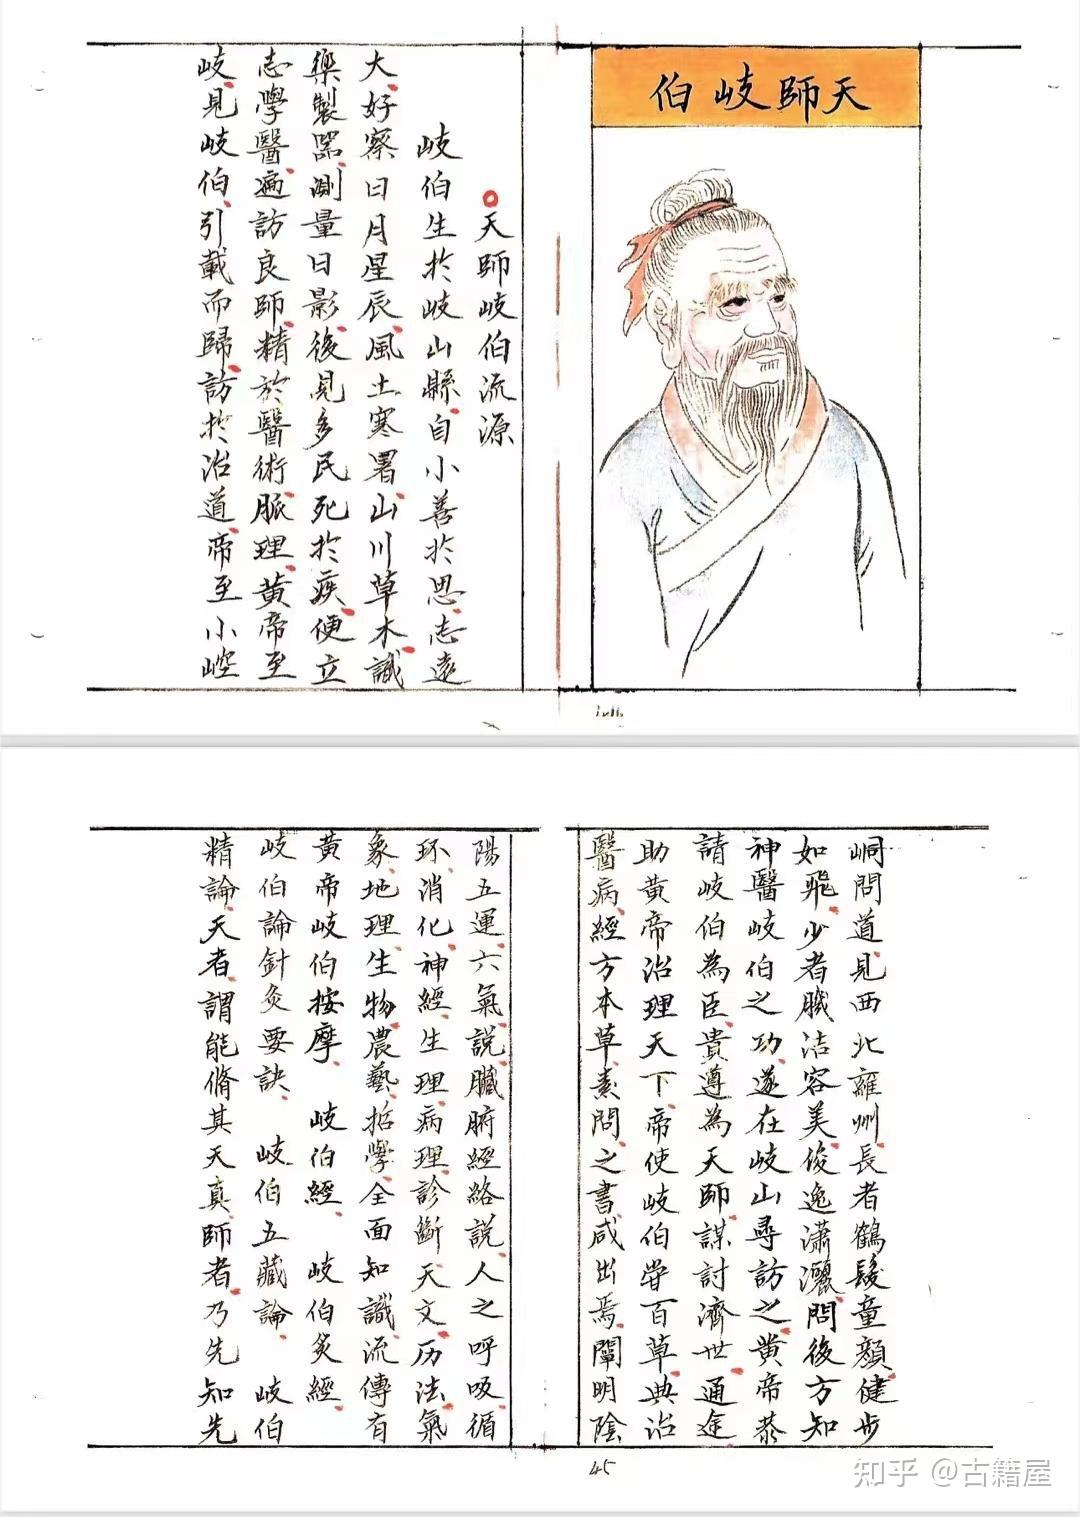 天師岐伯
天師岐伯流源
岐伯生於岐山縣自小善於思志遠
大好察日月星辰風土寒署山川草木識
樂製器測量日影後見多民死於疾便立
志學醫遍訪良師精於醫術脈理黃帝至
岐見岐伯引載而歸訪於治道帝至小崆
峒問道見西北雍州長者鶴髮童顏健步
如飛少者膱洁容美俊逸瀟灑問後方知
神醫岐伯之功遂在岐山尋訪之黃帝恭
請岐伯為臣貴遵為天師謀討濟世通途
助黃帝治理天下帝使岐伯嘗百草典治
醫病經方本草素問之書咸出焉闡明陰
陽五運六氣說臟腑經絡說人之呼吸循
环消化神經生理病理診斷天文历法氣
象地理生物農藝哲學全面知識流傳有
黃帝岐伯按摩 岐伯經 岐伯灸經
岐伯論針灸要訣 岐伯五藏論 岐伯
精論天者謂能脩其天真師者乃先知先
45
知乎 @古籍屋